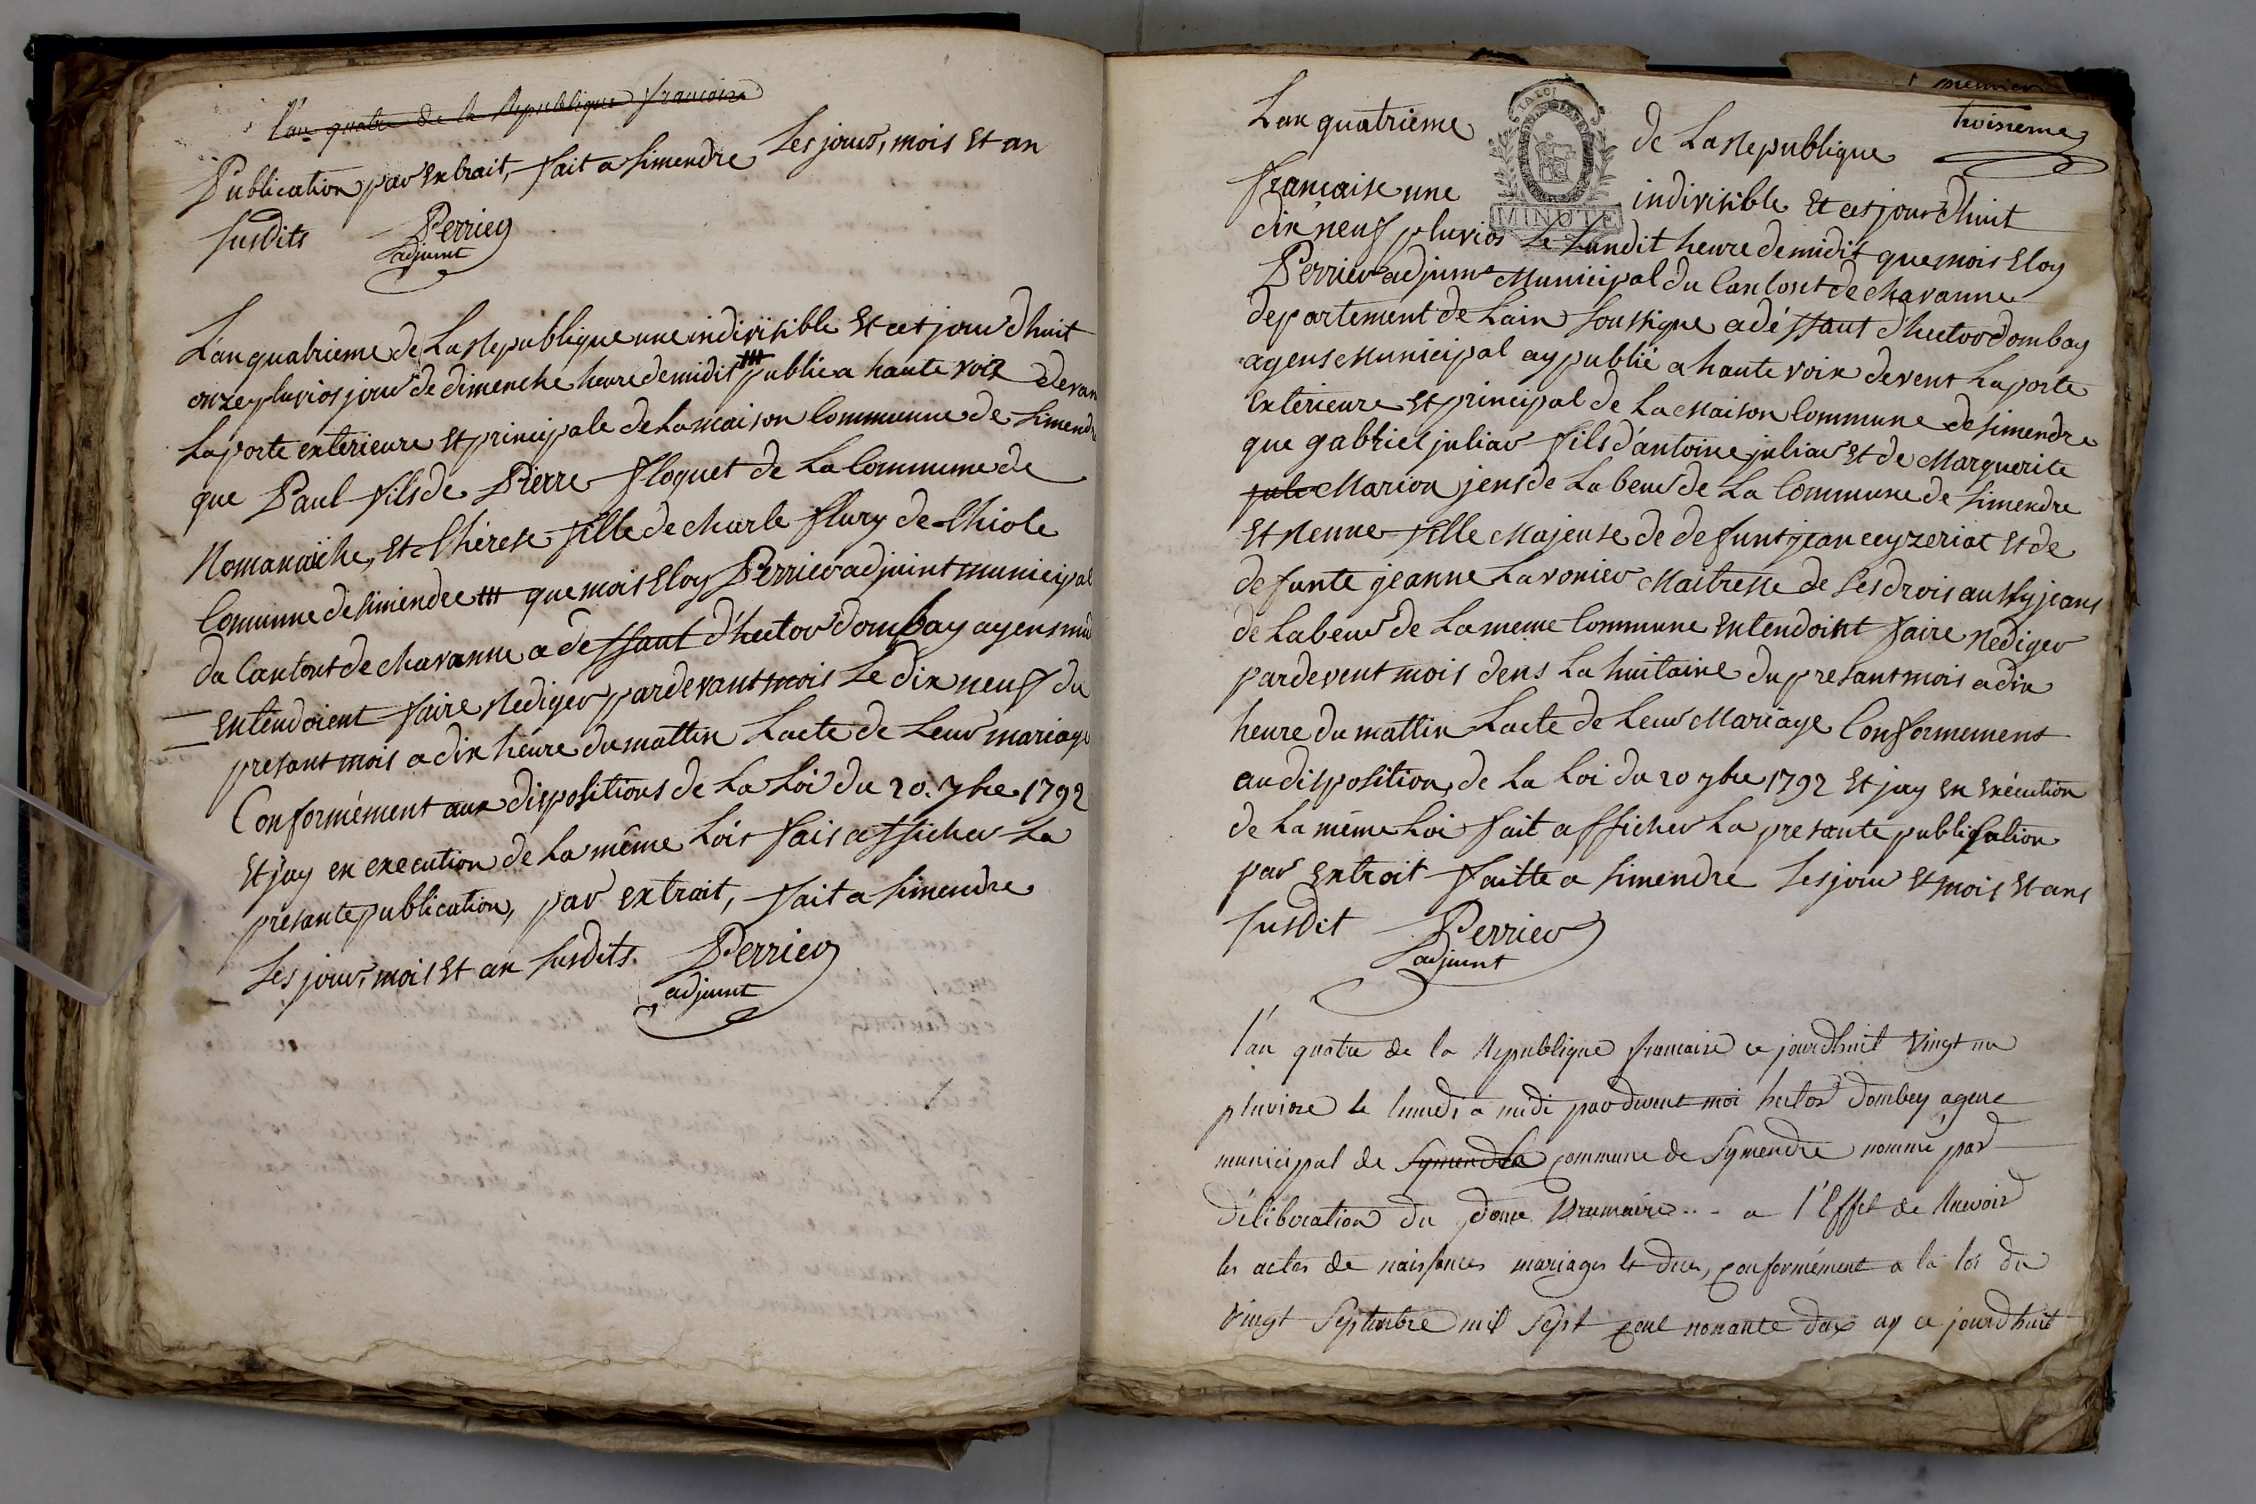 l'an quatre de la Republique francoise
Publication par extrait, fait a Simendre Les jours, mois Et an
Susdits Perrier
adjoint
L'an quatrieme de La Republique une indivisible Et cet jour dhuit
onze pluvios jour de dimenche heure de midit publié a haute voix devan
La porte exterieure Et principale de La maison Commune de Simendre
que Paul fils de Pierre floquet de La Commune de
Romanaïche, Et thérese fille de Charle flury de Chiole
Commune de Simendre que mois Eloy Perrier adjoint municipal
du Cantont de Chavanne a deffaut d'hector dombay agens mu
Entendoient faire Rediger par devant mois Le dix neuf du
presant mois a dix heure du mattin Lacte de Leur mariage
Conformément aux dispositions de La Loi du 20. 7bre 1792
Et jay en execution de La même Lois fais afficher La
presante publication, par extrait, fait a Simendre
Les jour, mois Et an Susdits. Perrier
adjoint
troisieme
L'an quatrieme de La Republique
LA LOI
française une indivisible Et cet jour dhuit
MINUTE
dix neuf pluvios Le Lundit heure de midit que mois Eloy
Perrier adjoint Municipal du Cantont de Chavanne
departement de Lain Soussigne a déffaut d'hector dombay
agens Municipal ay publié a haute voix devent La porte
Exterieure Et principal de La Maison Commune de Simendre
que gabriel juliar fils d'antoine juliar Et de Marguerite
jula Marion jens de Labeur de La Commune de Simendre
Et Renne fille Majeuse de defunt jean ceyzeriat Et de
defunte jeanne Lavonier Maitresse de Ses drois aussy jeans
de Labeur de La meme Commune Entendoint faire Rediger
pardevent mois dens La huitaine du presant mois a dix
heure du mattin Lacte de Leur Mariage Conformement
au disposition de La Loi du 20 7bre 1792 Et jay en exécution
de La même Loi fait afficher La presante publication
par Extrait faitte a Simendre Les jour Et mois Et ans
Susdit Perrier
adjoint
l'an quatre de la Republique francaise ce jourdhuit vingt un
pluviose le lunedi a midi par devent moi hector dombey agene
municipal de Symendre commune de Symendre nommé par
Délibération du Brumaire a l'Effet de Recevoir
les actes de naissances mariages et dece, conformément a la loi du
vingt Septembre mil Sept cent nonante deux ay ce jourdhuit